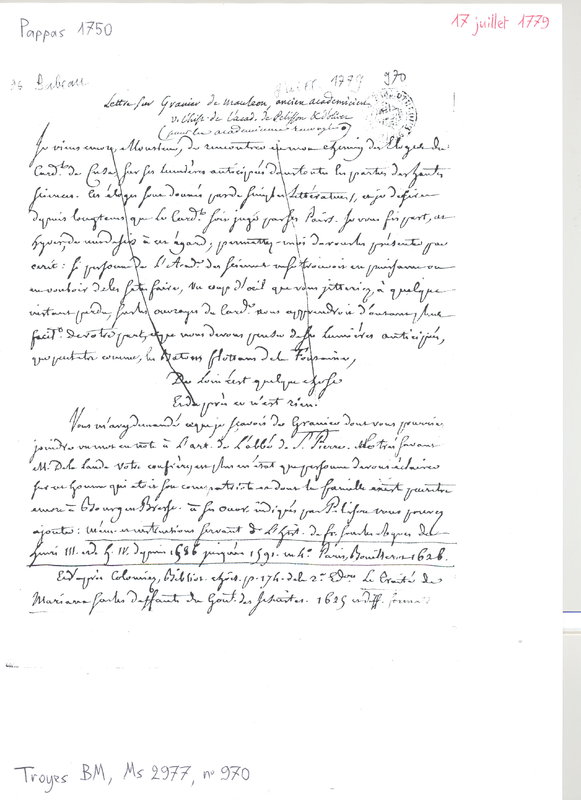 Pappas 1750
17 juillet 1779
1779 970
Lettre sur Granier de Mauleon, ancien academicien
v. l'hist. de l'acad. de Pelisson & d'olivet
(pour les academiciens
Je viens Monsieur, de rencontrer en mon chemin des Eloges du
Card.al de Cusa, sur ses lumières anticipées dans toutes les parties des hautes
sciences. Ces éloges sont donnés par de simples Littérateurs, et je desire
depuis longtems que le Card.al soit jugé par ses Pairs. Je vous fis part, cet
hyver, de mes à cet égard; permettez-moi de vous les présenter par
ecrit: si personne de l'Acad. des sciences ne se trouvoit en puissance ou
en vouloir de les satisfaire, un coup d'oeil que vous jetteriez, à quelque
instant perdu, sur les ouvrages du Card.al nous apprendroit d'autant plus
facil.t de votre part, ce que nous devons penser de ses lumières anticipées,
qui peut etre comme les Batons flottans de la Fontaine,
De loin c'est quelque chose
Et de près ce n'est rien.
Vous m'avez demandé ce que je scavois de Granier dont vous pourriez
joindre un mot en note à l'art. de l'abbé de St. Pierre. Mes très savant
M. De la Lande votre confrère, est plus en état que personne de vous éclairer
sur un homme qui etoit son compatriote et dont la famille existe peut etre
encore à Bourg en Bresse. à ses ouvr. indiqués par Pelisson vous pouvez
ajouter: mémoires et instructions servant à l'hist. de Fr. sous les règnes de
henri III. et de h. IV. depuis 1586 jusqu'en 1591. in 4°. Paris, Bouillerot 1626.
Et d'après Colomiez, Biblioth. chois. p. 174. de la 2.e Edon. Le Traité de
Mariana sur les deffauts du Gouv. des Jesuites. 1625 et diff. format
Troyes BM, Ms 2977, n° 970